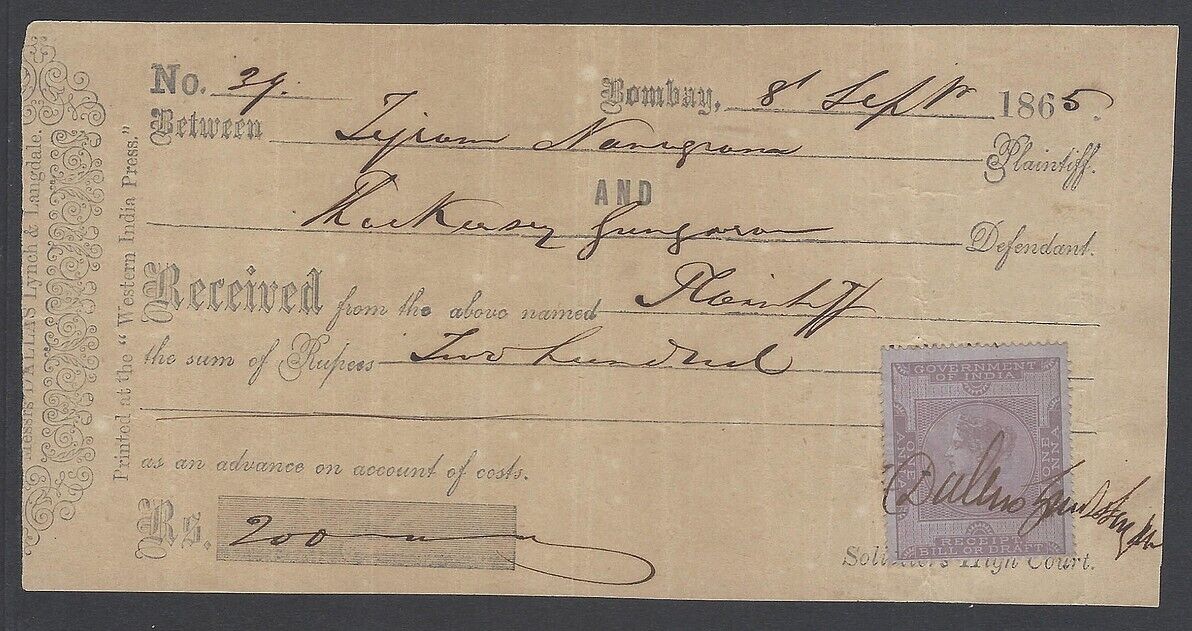 Messrs DALLAS Lynch & Langdale.
Printed at the "Western India Press."
No. 39. Bombay, 8th Septr 1865.
Between Tejram Plaintiff.
AND
Thackersey Defendant.
Received from the above named Plaintiff
the sum of Rupees Two hundred
as an advance on account of costs.
Rs. 200
GOVERNMENT OF INDIA
ONE ANNA
ONE ANNA
RECEIPT BILL OR DRAFT
Solicitors High Court.